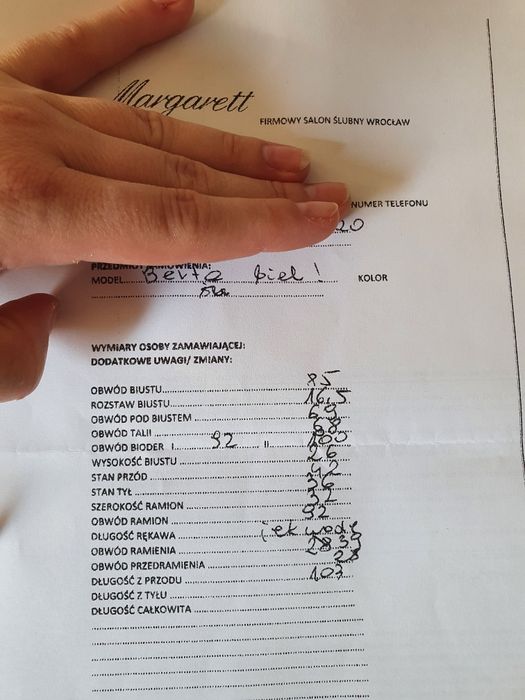 Margarett
FIRMOWY SALON ŚLUBNY WROCŁAW
NUMER TELEFONU
20
PRZEDMIOT ZAMÓWIENIA:
MODEL Berta biel! KOLOR
WYMIARY OSOBY ZAMAWIAJĄCEJ:
DODATKOWE UWAGI/ ZMIANY:
OBWÓD BIUSTU 85
ROZSTAW BIUSTU 16,5
OBWÓD POD BIUSTEM 69
OBWÓD TALII 68
OBWÓD BIODER I 92 II 100
WYSOKOŚĆ BIUSTU 26
STAN PRZÓD 42
STAN TYŁ 36
SZEROKOŚĆ RAMION 37
OBWÓD RAMION 92
DŁUGOŚĆ RĘKAWA jak
OBWÓD RAMIENIA 28
OBWÓD PRZEDRAMIENIA 28
DŁUGOŚĆ Z PRZODU 103
DŁUGOŚĆ Z TYŁU
DŁUGOŚĆ CAŁKOWITA